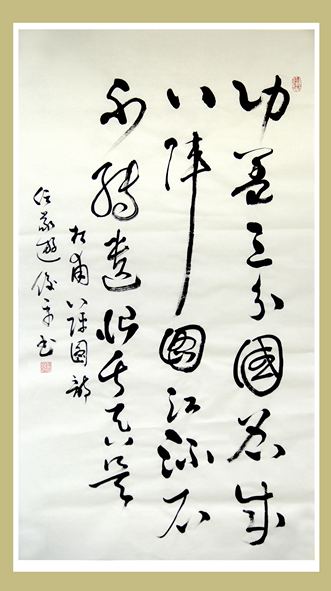 功蓋三分國名成
八陣圖江流石
不轉遺恨失吞吳
杜甫八陣圖
遊
書